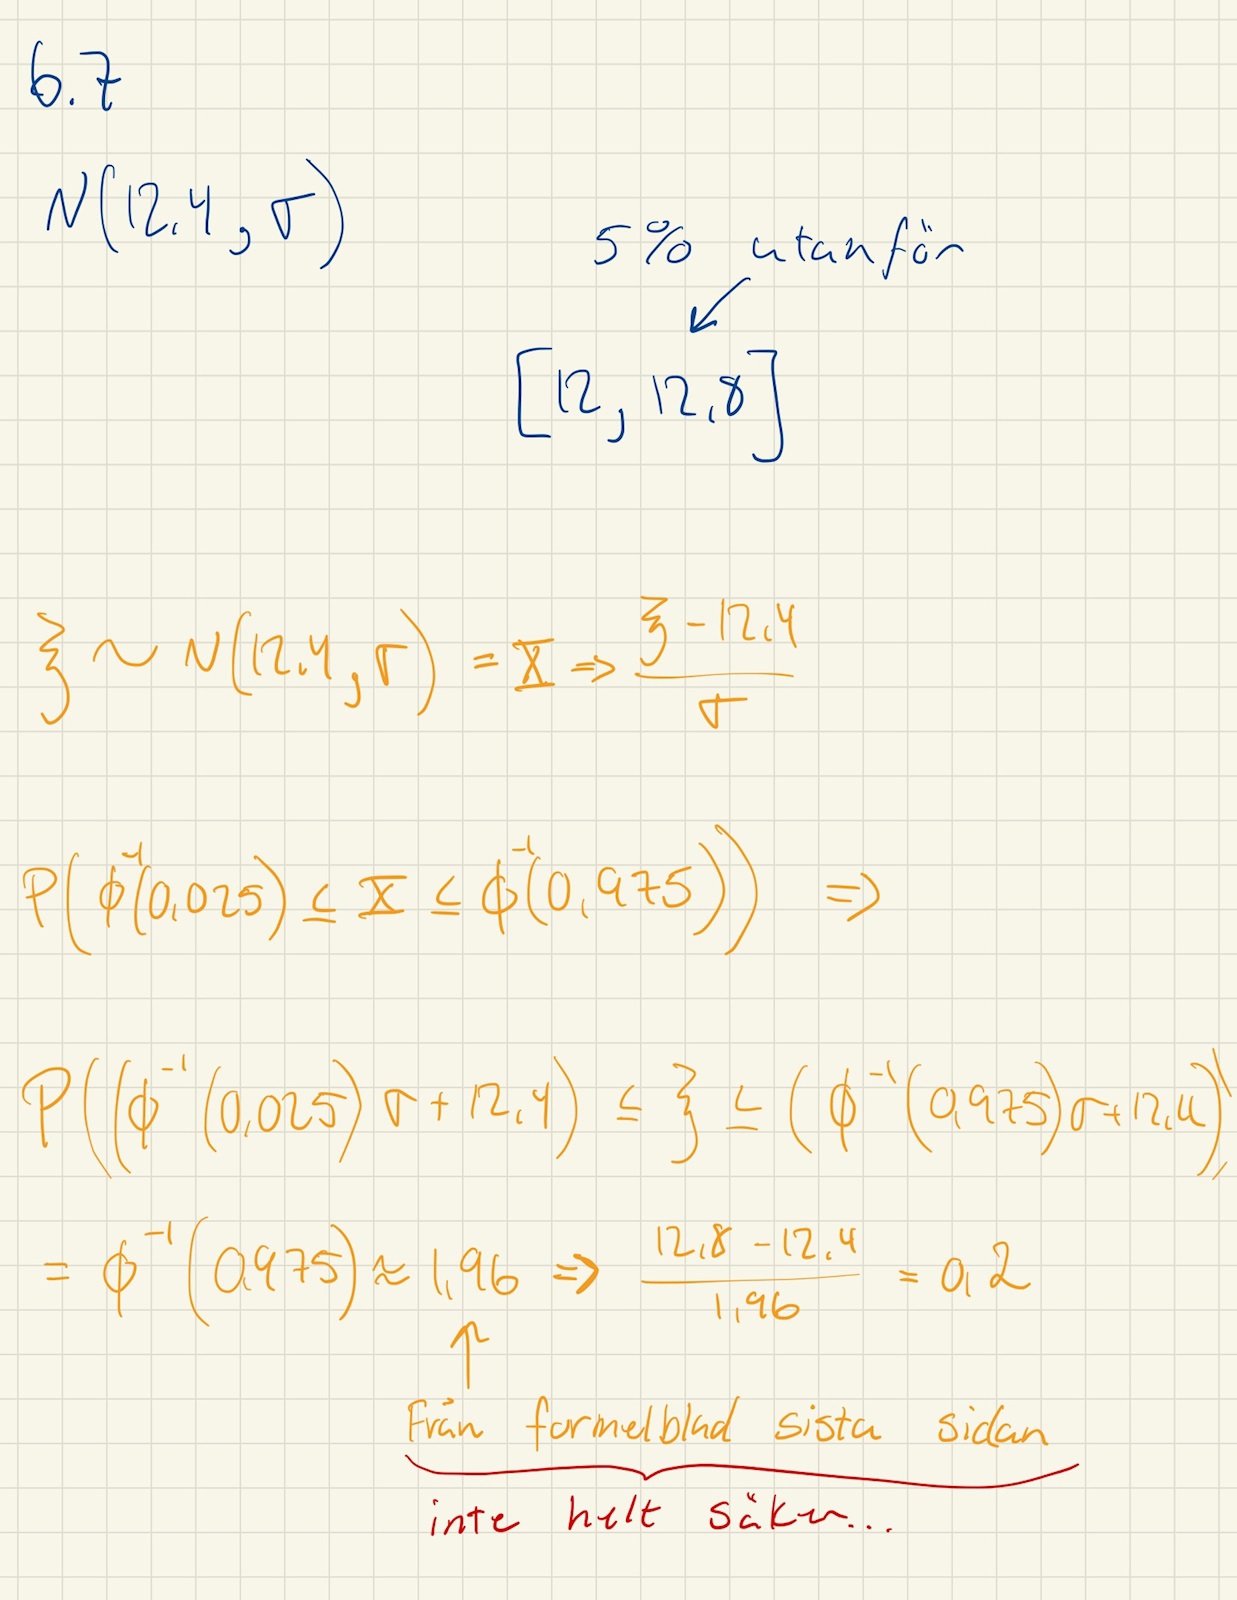 6.7
N(12.4, σ)
5% utanför
[12, 12,8]
ξ ~ N(12.4, σ) = X => (ξ - 12,4)/σ
P(ϕ⁻¹(0,025) ≤ X ≤ ϕ⁻¹(0,975)) =>
P((ϕ⁻¹(0,025)σ + 12,4) ≤ ξ ≤ (ϕ⁻¹(0,975)σ+12,4))
= ϕ⁻¹(0,975) ≈ 1,96 => (12,8 - 12,4)/1,96 = 0,2
↑
Från formelblad sista sidan
inte helt säker...